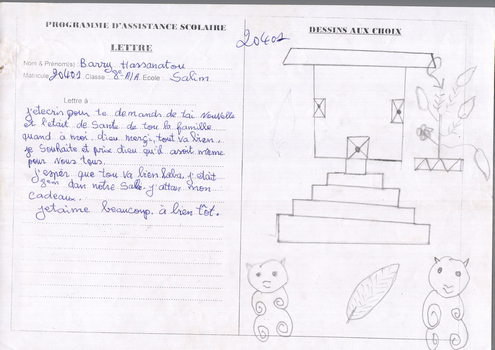 PROGRAMME D'ASSISTANCE SCOLAIRE
LETTRE
Nom & Prénom(s) Barry Hassanatou
Matricule 20401 Classe 8e A/A Ecole: Salim
Lettre à
j'etecris pour te demands de tai nouvelle
et l'état de Santé de tou la famille
quand à moi. dieu merçi, tout va lien.
je Souhaite et prix dieu qu'il asoit même
pour vous tous.
j'esper que tou va lien laba. j'était
3em dan notre Sale. j'attan mon
cadeaux.
jetaime beaucoup. à bien tôt.
20401
DESSINS AUX CHOIX